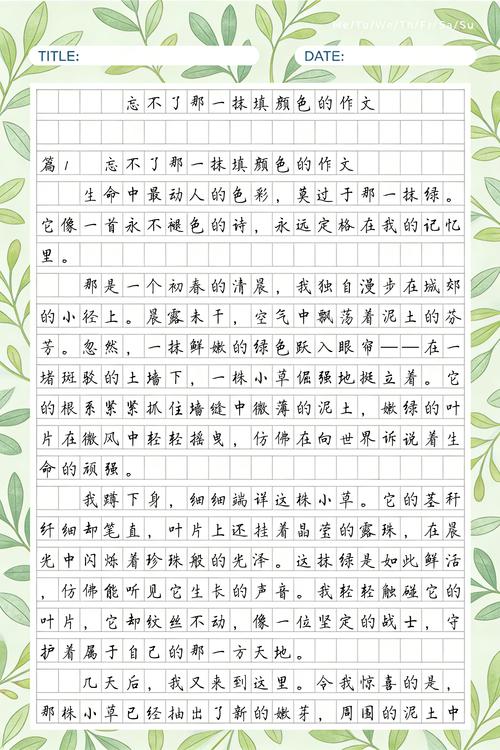 Me/Tu/We/Th/Fr/Sa/Su
TITLE:
DATE:
忘不了那一抹填颜色的作文
篇1 忘不了那一抹填颜色的作文
生命中最动人的色彩，莫过于那一抹绿。
它像一首永不褪色的诗，永远定格在我的记忆
里。
那是一个初春的清晨，我独自漫步在城郊
的小径上。晨露未干，空气中飘荡着泥土的芬
芳。忽然，一抹鲜嫩的绿色跃入眼帘——在一
堵斑驳的土墙下，一株小草倔强地挺立着。它
的根系紧紧抓住墙缝中微薄的泥土，嫩绿的叶
片在微风中轻轻摇曳，仿佛在向世界诉说着生
命的顽强。
我蹲下身，细细端详这株小草。它的茎秆
纤细却笔直，叶片上还挂着晶莹的露珠，在晨
光中闪烁着珍珠般的光泽。这抹绿是如此鲜活
，仿佛能听见它生长的声音。我轻轻触碰它的
叶片，它却纹丝不动，像一位坚定的战士，守
护着属于自己的那一方天地。
几天后，我又来到这里。令我惊喜的是，
那株小草已经抽出了新的嫩芽，周围的泥土中